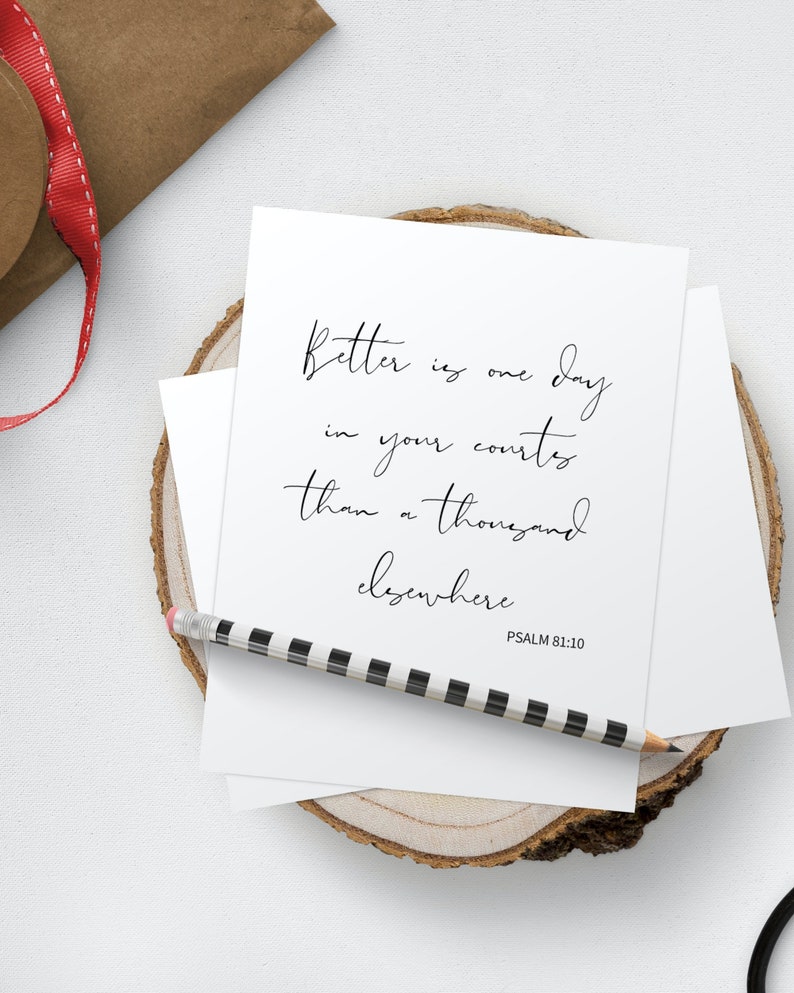 Better is one day
in your courts
than a thousand
elsewhere
PSALM 81:10